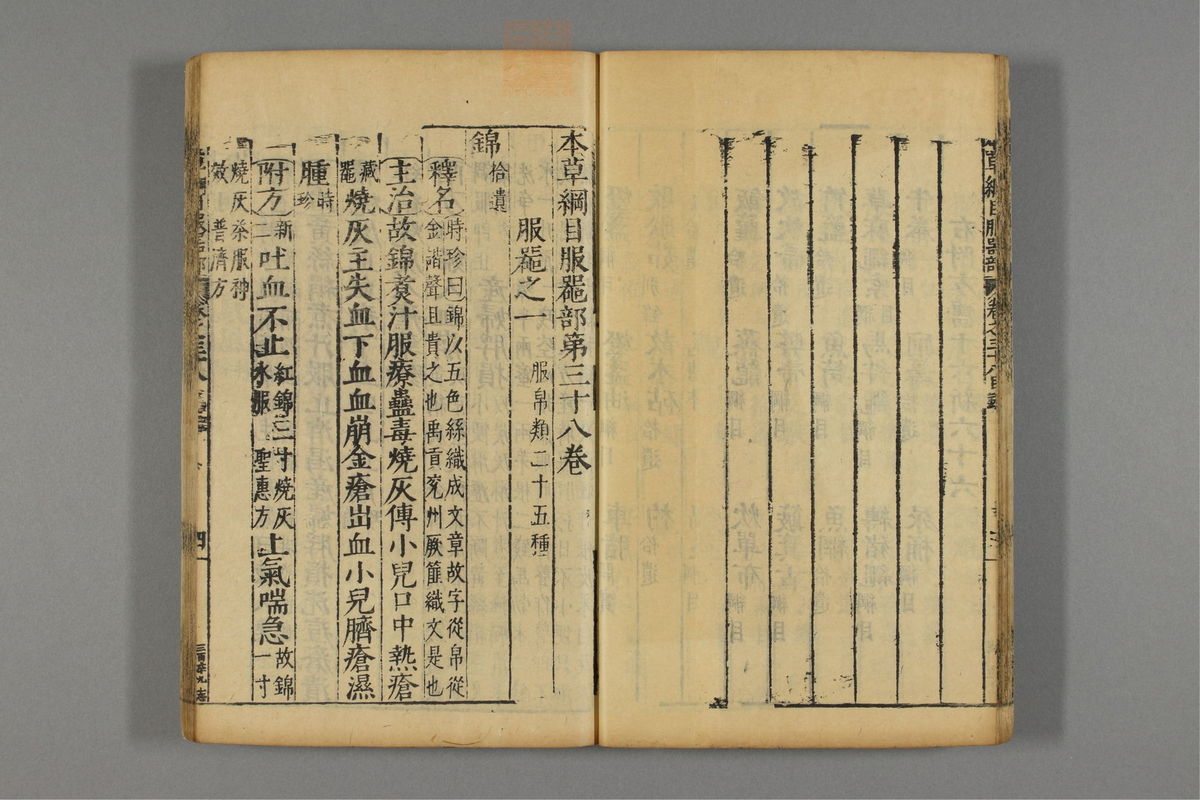 本草綱目服器部第三十八卷
服器之一 服帛類二十五種
錦 拾遺
釋名 時珍曰錦以五色絲織成文章故字從帛從
金諧聲且貴之也禹貢兖州厥篚織文是也
主治故錦煑汁服療蠱毒燒灰傅小兒口中熱瘡
藏器燒灰主失血下血血崩金瘡出血小兒臍瘡濕
腫 時珍
附方 新二 吐血不止 紅錦三寸燒灰水服 聖惠方 上氣喘急 故錦一寸
燒灰茶服神
效 普濟方